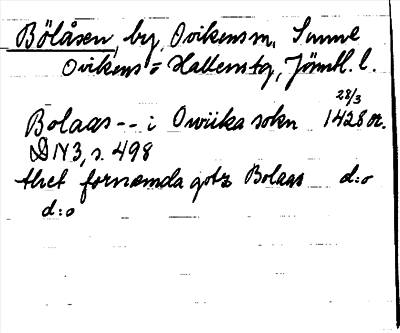 Bölåsen, by, Ovikens sn, Sunne
Ovikens o Hallens tg, Jämtl. l.
28/3
Bolaas -- i Owiika sokn 1428 or.
DN 3, s. 498
thet fornæmda gotz Bolaas d:o
d:o